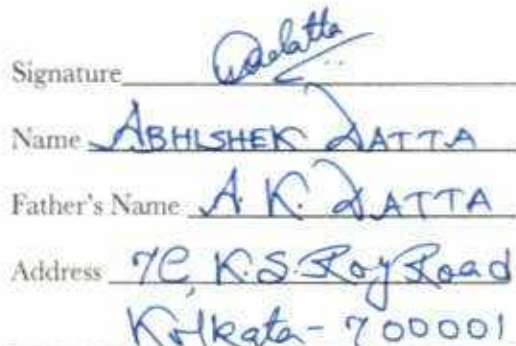 Signature
Name ABHISHEK DATTA
Father's Name A. K. DATTA
Address 7C, K.S. Roy Road
Kolkata - 700001